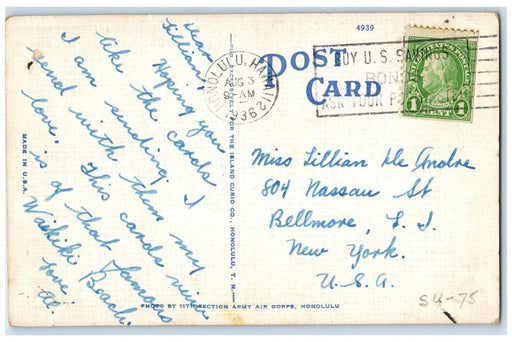 4939
POST
CARD
HONOLULU, HAWAII
AUG 3
9-AM
1936
BUY U.S. SAVINGS
BONDS
ASK YOUR POSTMASTER
1 CENT 1
Dear
Lillian,
Hoping you
like the cards
I am sending. I
send with them my
love. This cards view
is of that famous
Waikiki Beach.
Love
Miss Lillian De Andre
804 Nassau St
Bellmore, L. I.
New York.
U.S.A.
MADE IN U.S.A.
EXCLUSIVELY FOR THE ISLAND CURIO CO., HONOLULU, T. H.
PHOTO BY 11TH SECTION ARMY AIR CORPS, HONOLULU
SU-75